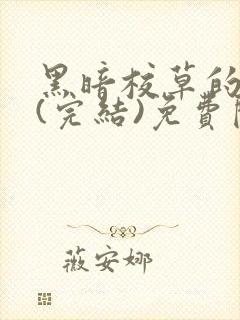 黑暗校草的
(完結)免費
薇安娜